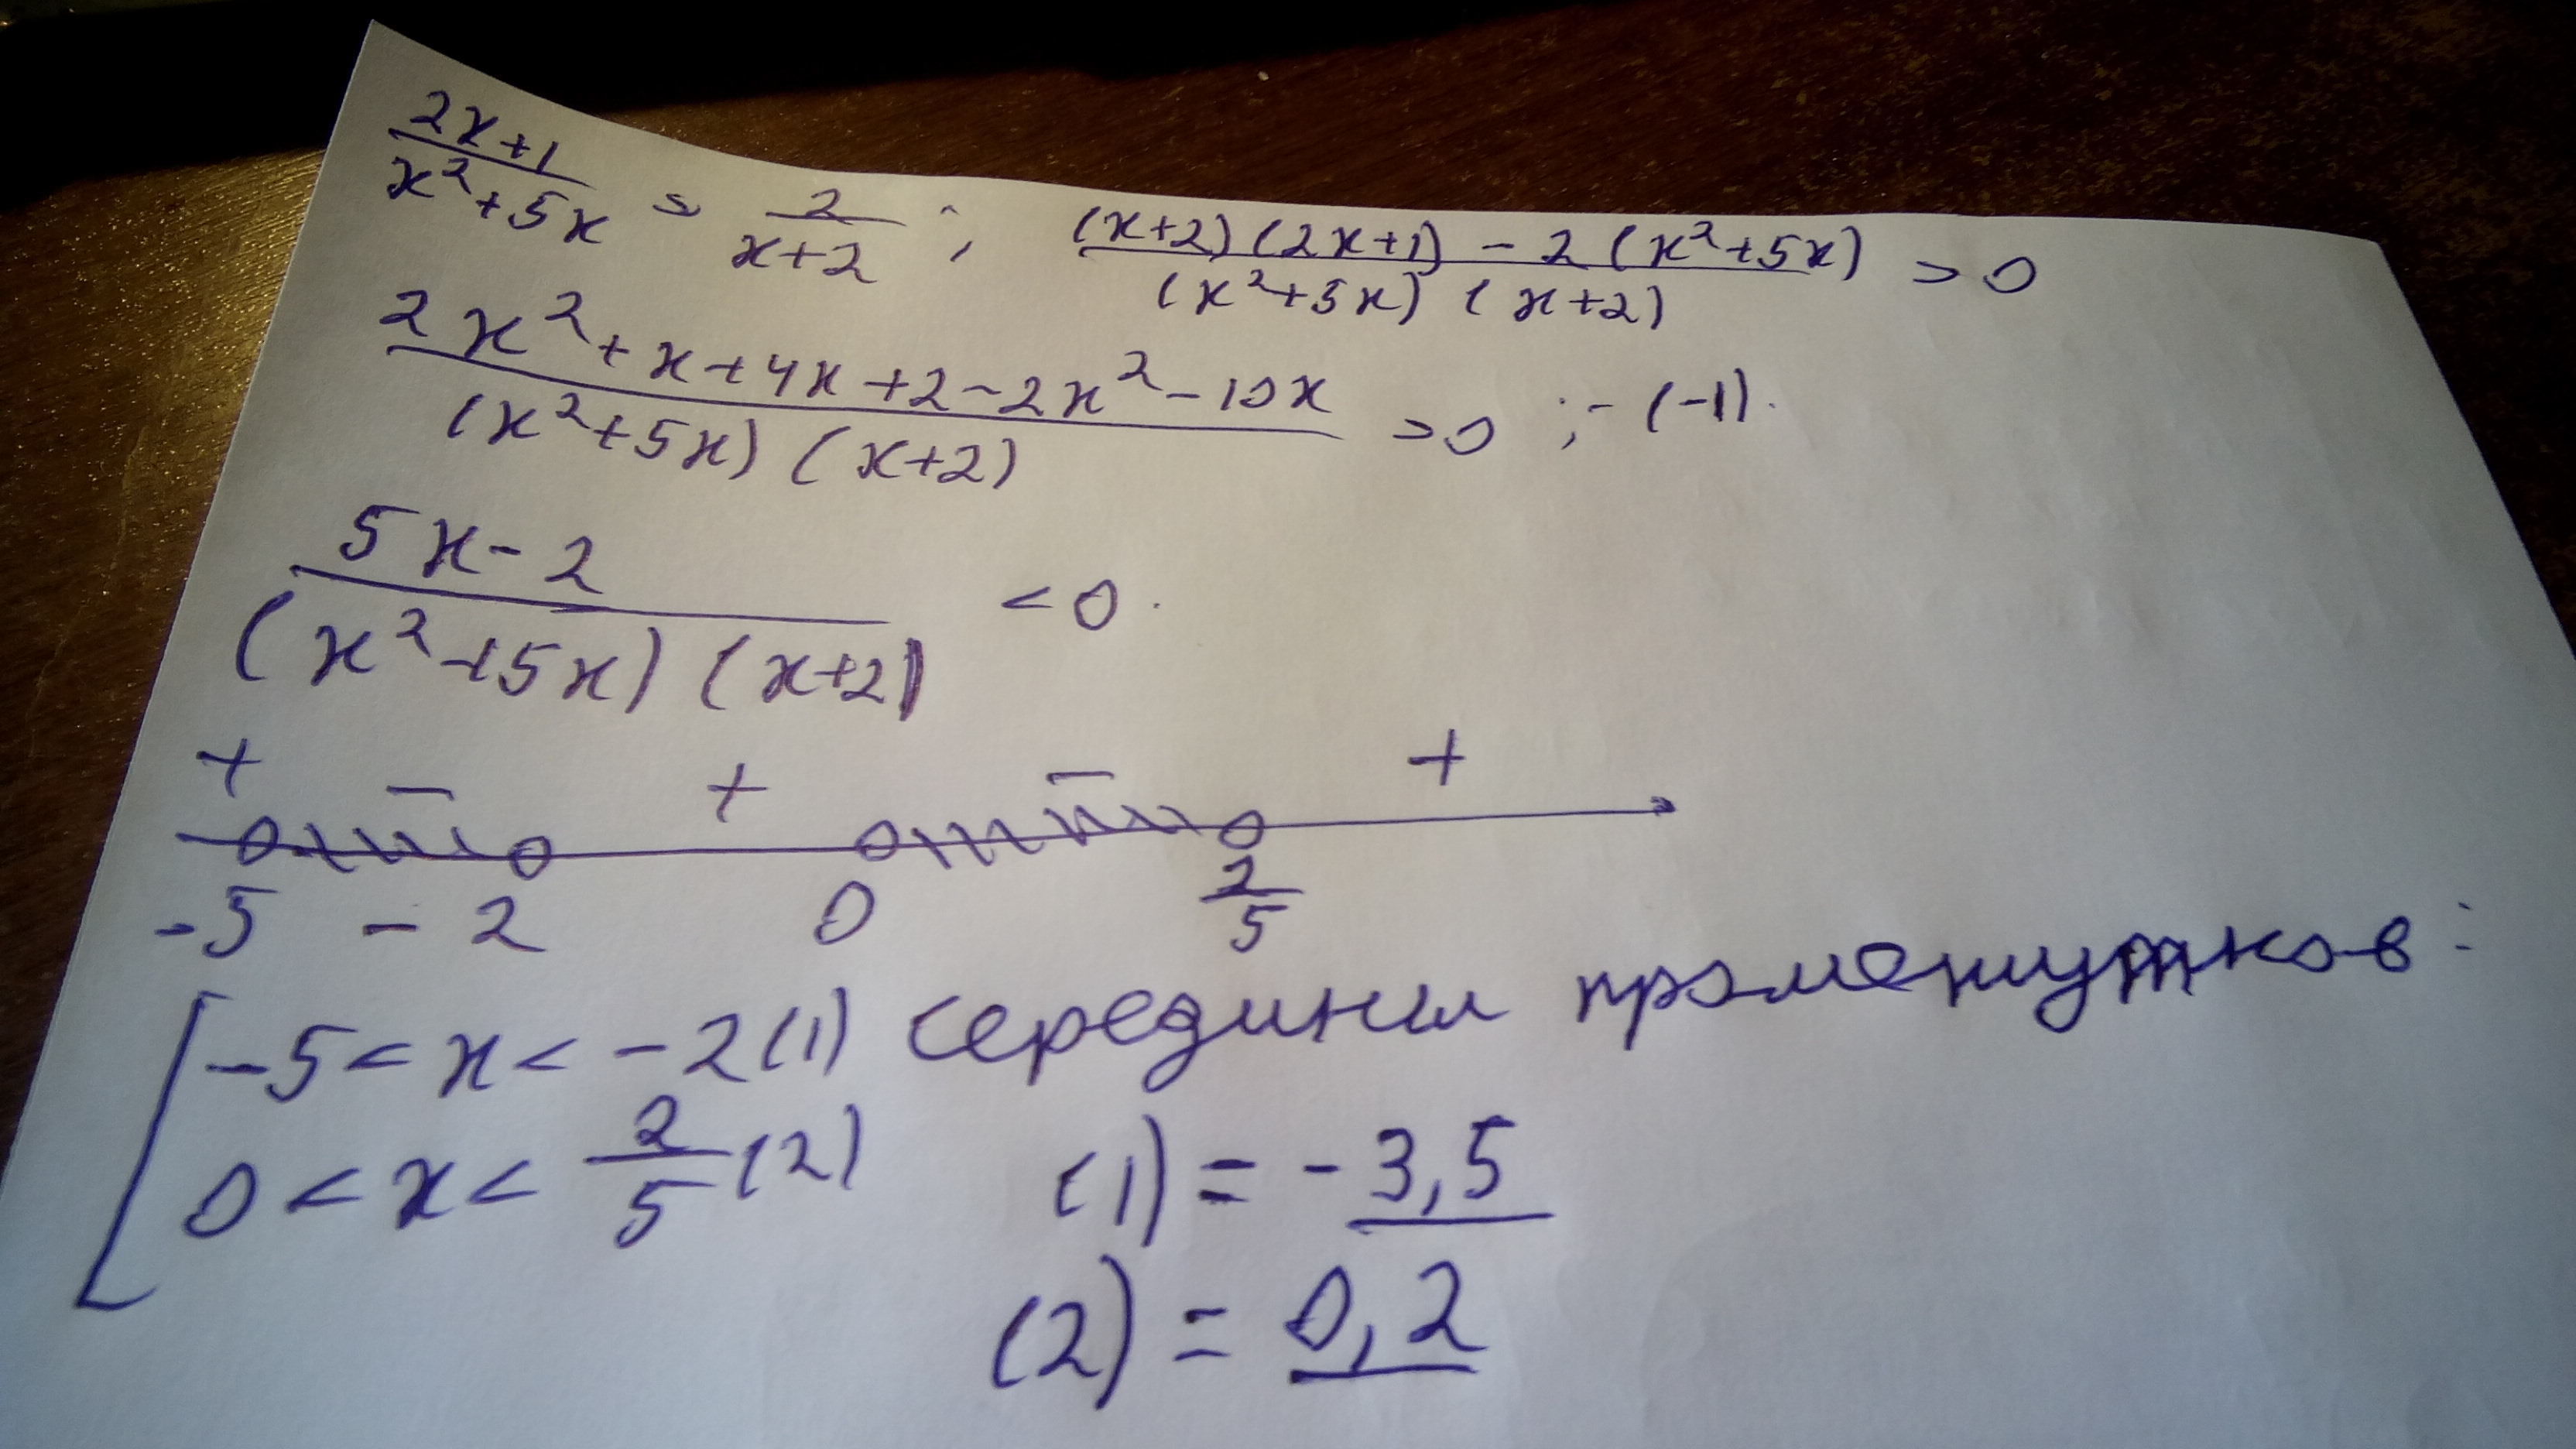 (2x+1)/(x²+5x) > 2/(x+2) ; ((x+2)(2x+1) - 2(x²+5x))/((x²+5x)(x+2)) > 0
(2x²+x+4x+2-2x²-10x)/((x²+5x)(x+2)) > 0 ; - (-1).
(5x-2)/((x²+5x)(x+2)) < 0.
+ - + - +
-5 -2 0 2/5
[ -5 < x < -2 (1) середины промежутков:
0 < x < 2/5 (2) (1) = -3,5
(2) = 0,2